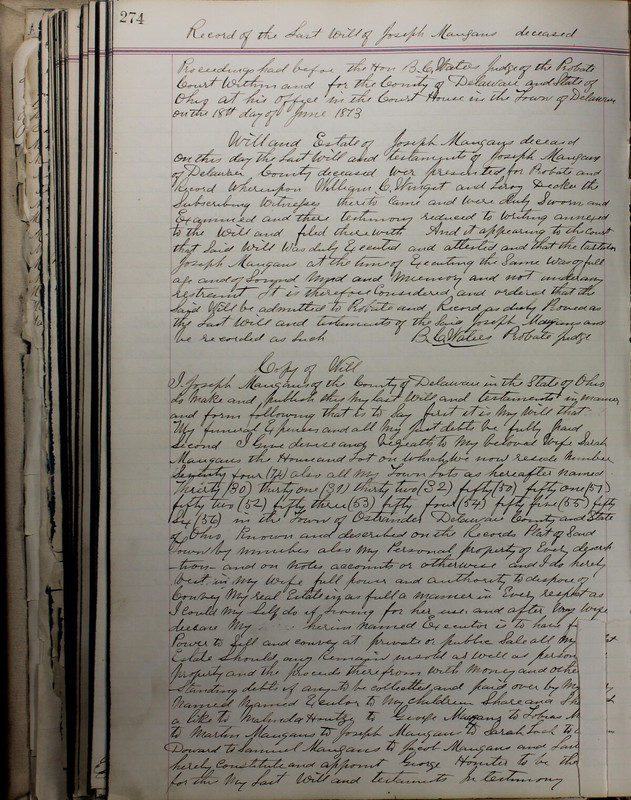 274
Record of the Last Will of Joseph Mangans deceased
Proceedings had before the Hon B.C. Waters Judge of the Probate
Court Within and for the County of Delaware and State of
Ohio at his office in the Court House in the Town of Delaware
on the 18th day of June 1873
Will and Estate of Joseph Mangans deceased
on this day the Last Will and testament of Joseph Mangans
of Delaware County deceased wer presented for Probate and
Record Whereupon William C. and Leroy the
Subscribing Witnesses thereto Came and were duly Sworn and
Examined and there testimony reduced to writing annexed
to the Will and filed therewith And it appearing to the court
that Said Will was duly Executed and attested and that the testator
Joseph Mangans at the time of Executing the Same was of full
age and of Sound Mind and Memory and not under any
restraint It is therefore Considered and ordered that the
Said Will be admitted to Probate and Record as duly Proved as
the Last Will and testament of the Said Joseph Mangans and
be recorded as Such B.C. Waters Probate Judge
Copy of Will
I Joseph Mangans of the County of Delaware in the State of Ohio
do Make and publish this My last Will and testament in manner
and form following that is to Say first it is My Will that
My funeral Expences and all My just debts be fully paid
Second I Give devise and bequeath to My beloved Wife Sarah
Mangans the House and Lot on which We now reside Number
Seventy four (74) also all My Town Lots as hereafter named
Thirty (30) thirty one (31) thirty two (32) fifty (50) fifty one (51)
fifty two (52) fifty three (53) fifty four (54) fifty five (55) fifty
six (56) in the Town of Ostrander Delaware County and State
of Ohio, Known and described on the Records Plat of Said
Town by numbers also My Personal property of Every descrip
-tion- and on notes accounts or otherwise and I do hereby
vest in My Wife full power and authority to dispose of
Convey My real Estate in as full a manner in Every respect as
I could My Self do if living for her use and after My Wife
decease My herein named Executor is to have f
Power to Sell and convey at private or public Sale all My
Estate Should any remain unsold as well as person
Property and the proceeds therefrom with Money and othe
Standing debts if any to be collected and paid over by My
Named Executor to My children Share and Sh
a like to Malinda to George Mangans to Tobias M
to Martin Mangans to Joseph Mangans to Sarah to
to Samuel Mangans to Jacob Mangans and
hereby Constitute and appoint George to be the
for the My Last Will and testament In testimony